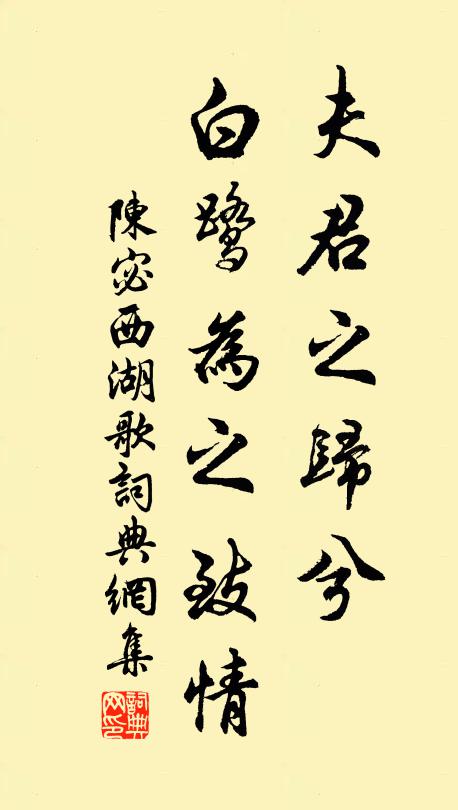 夫君之歸兮
白鹭為之致情
陳宓西湖歌詞典網集
詞典网印